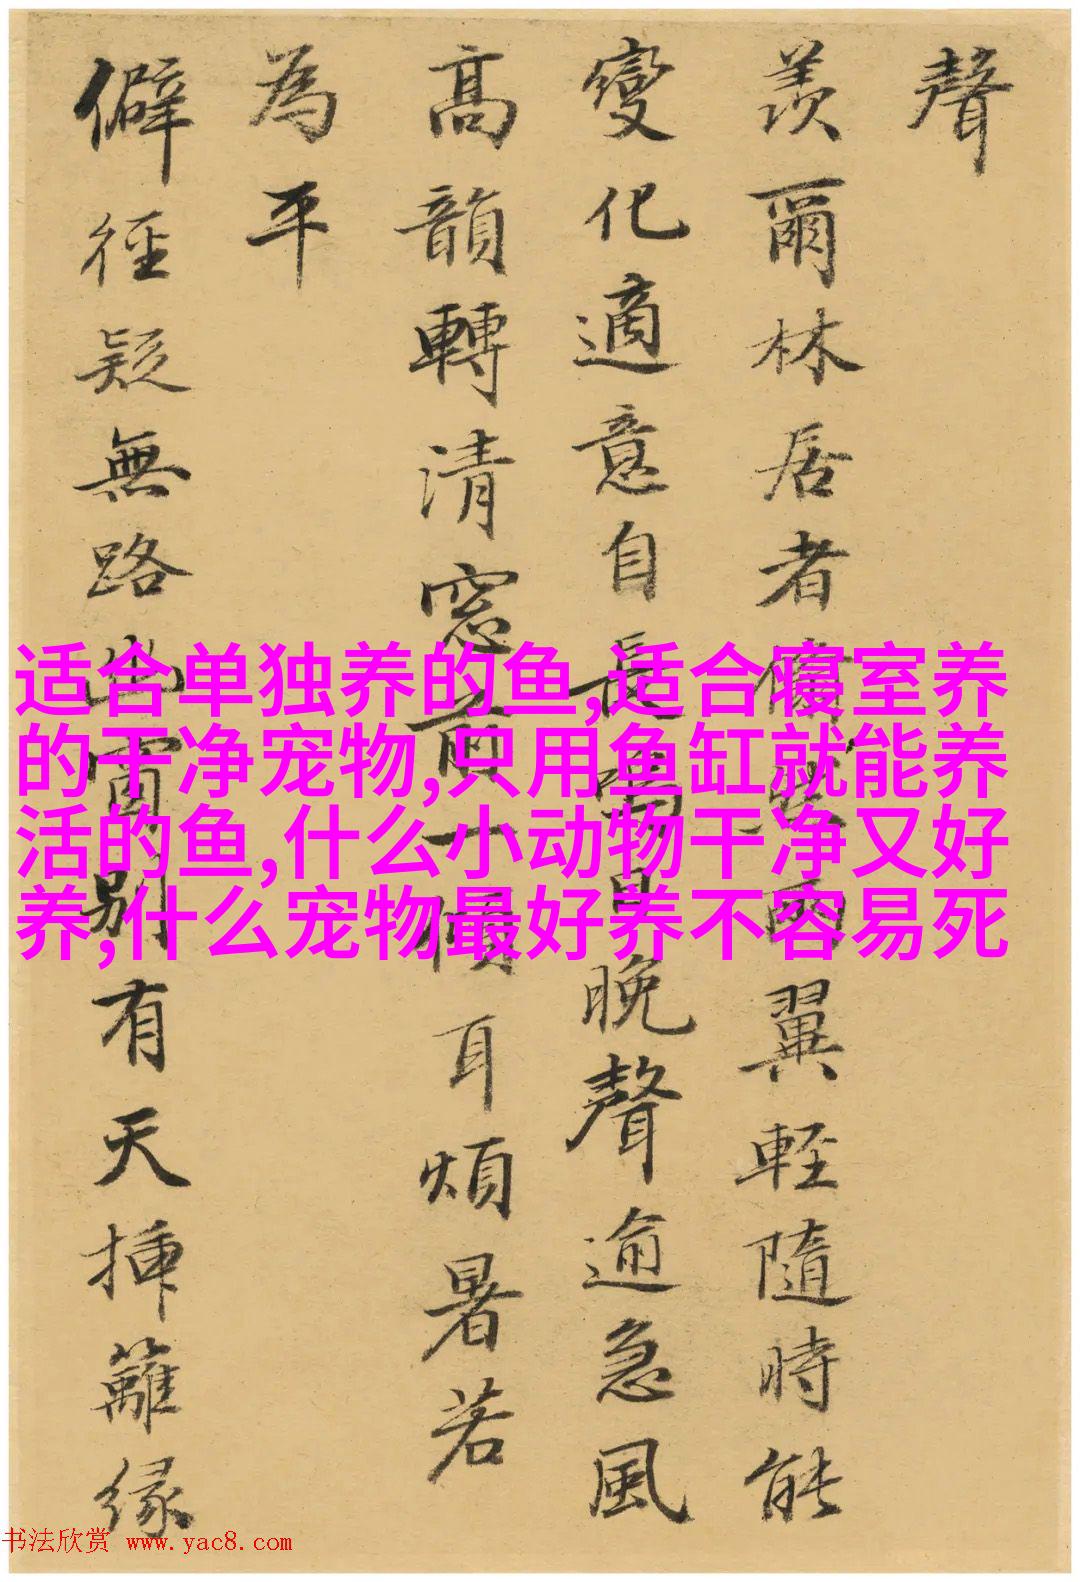 聲
羨爾林居者翼輕隨時能
變化適意自長鳴日晚聲逾急風
高韻轉清窓前一傾耳煩暑若
為平
僻徑疑無路幽別有天插籬緣
适合单独养的鱼,适合寝室养
的干净宠物,只用鱼缸就能养
活的鱼,什么小动物干净又好
养,什么宠物最好养不容易死
书法欣赏 www.yac8.com